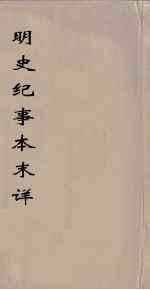 明史纪事本末详